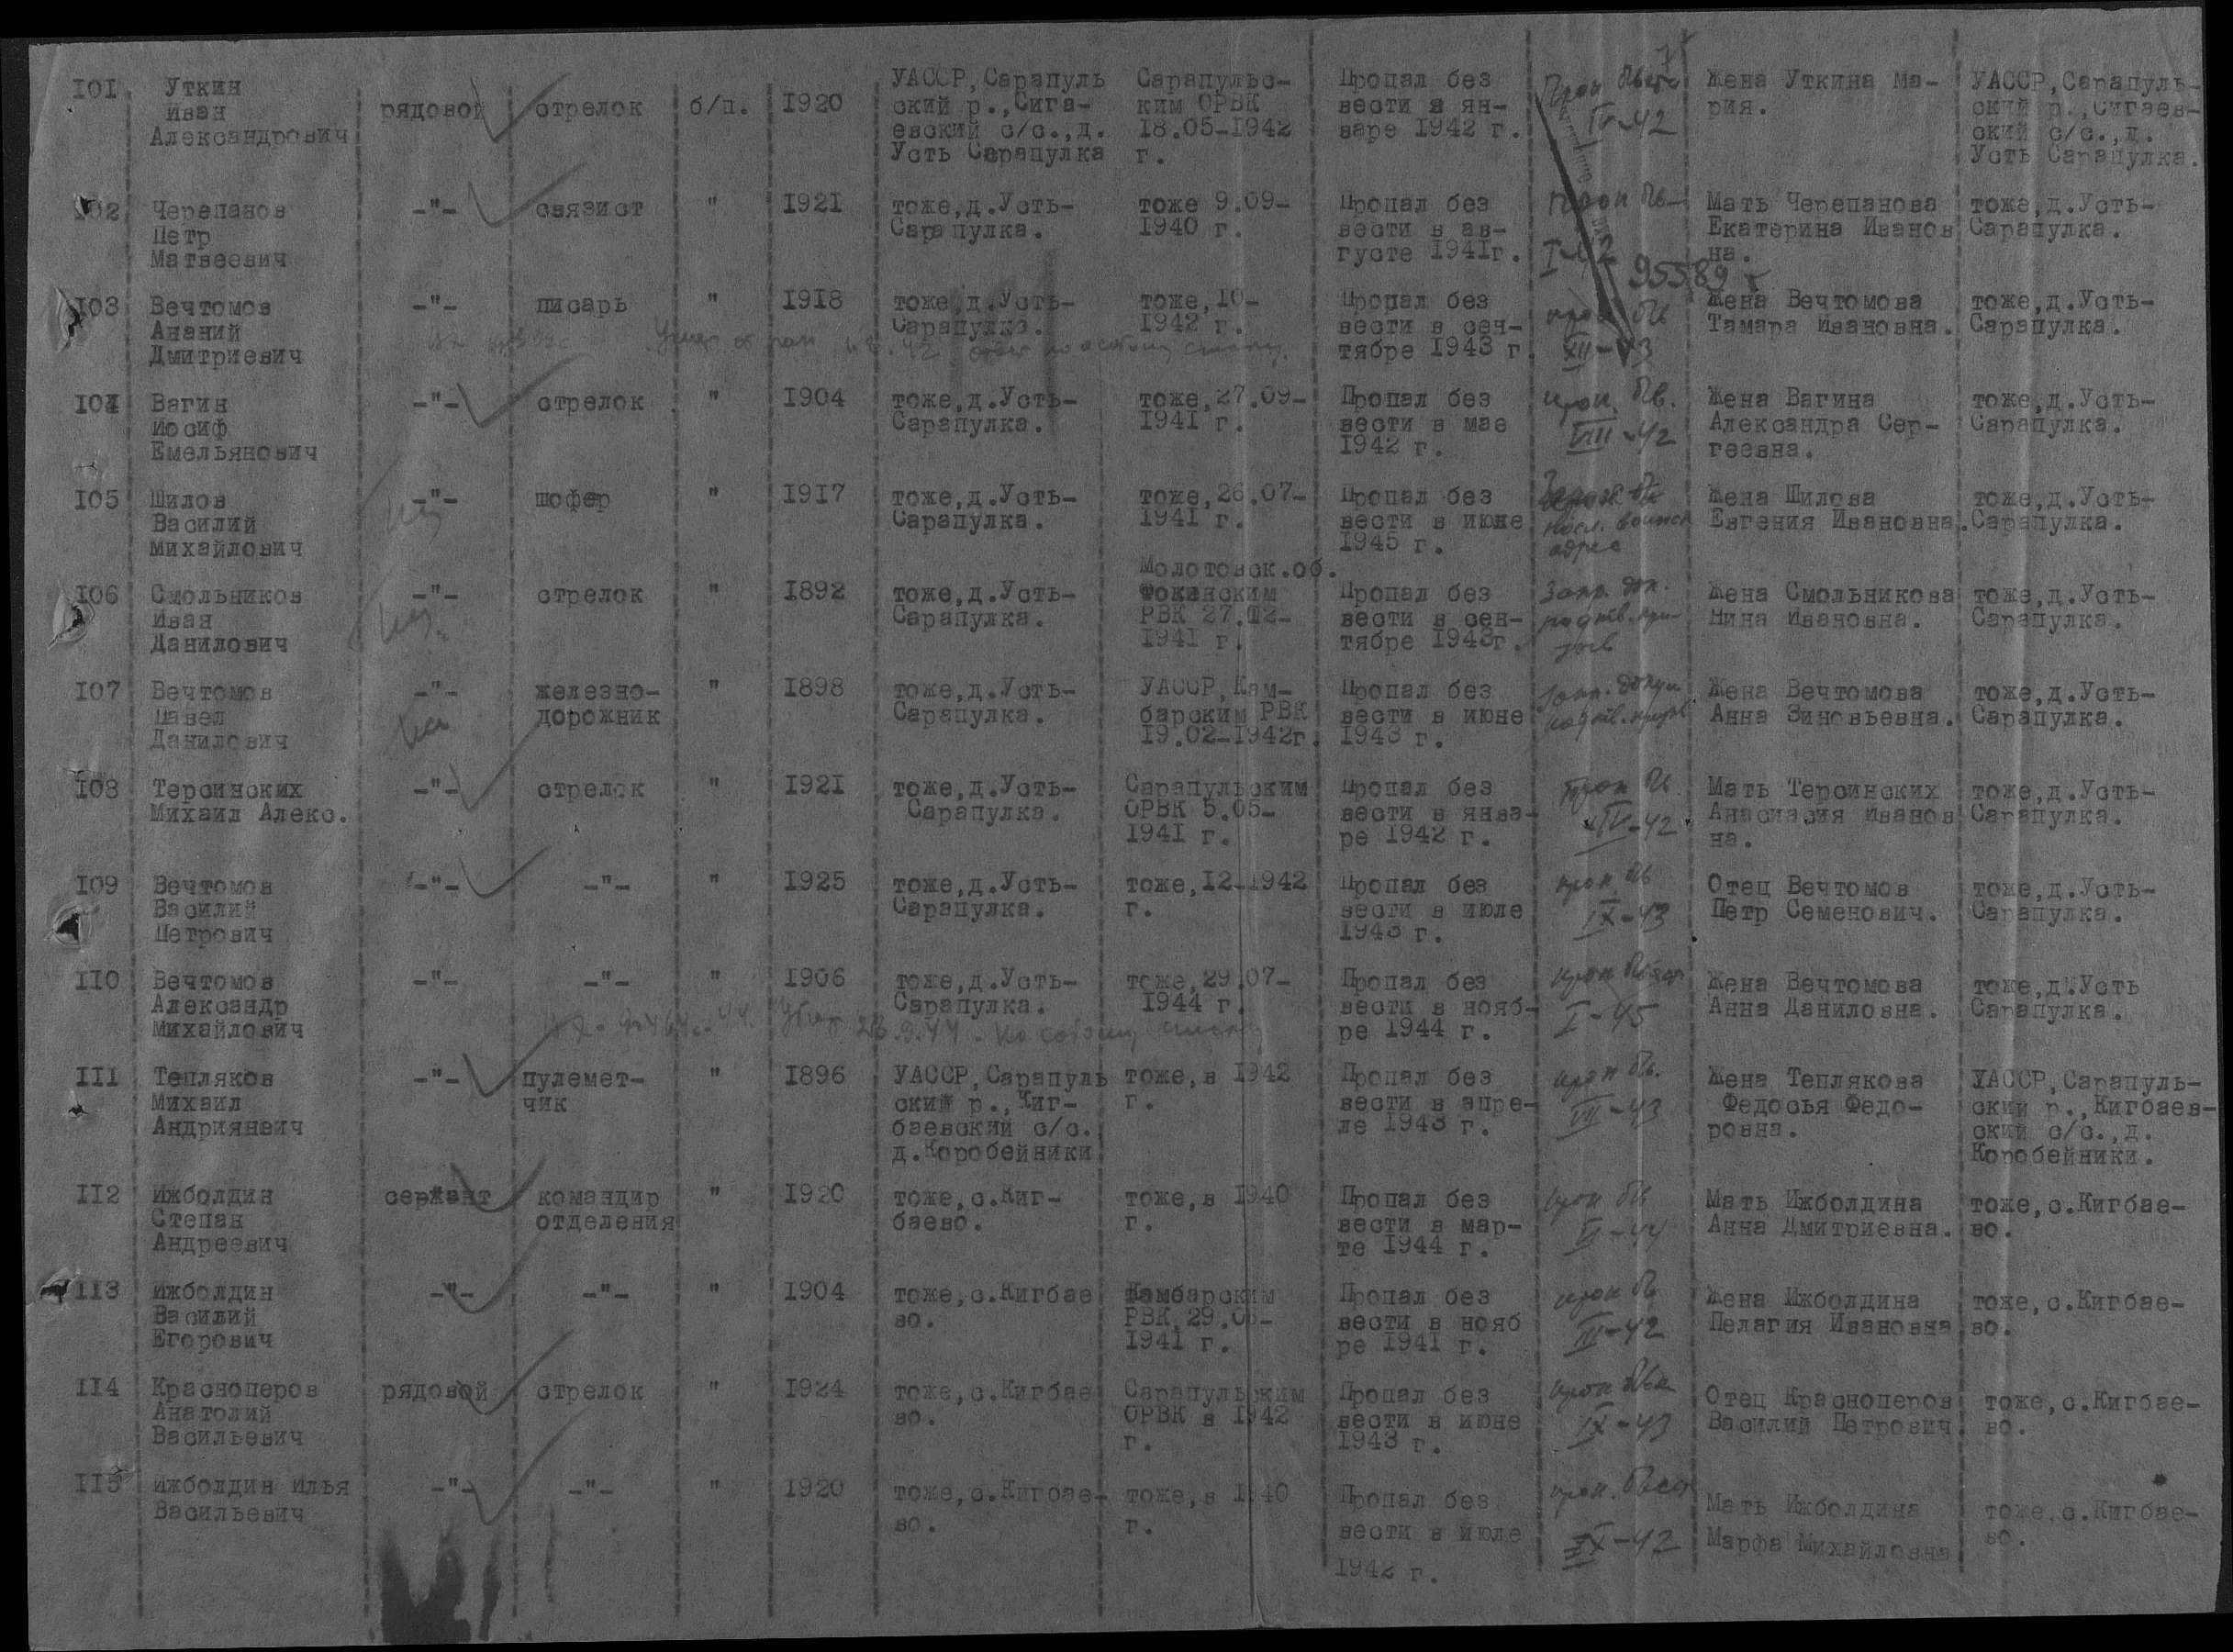 101 Уткин Иван Александрович рядовой стрелок б/п. 1920 УАССР, Сарапуль ский р., Сига- евский с/с., д. Усть Сарапулка Сарапульс- ким ОРВК 18.05-1942 г. Пропал без вести в ян- варе 1942 г. IV-42 Жена Уткина Ма- рия. УАССР, Сарапуль- ский р., Сигаев- ский с/с., д. Усть Сарапулка.
102 Черепанов Петр Матвеевич -"- связист " 1921 тоже, д. Усть- Сарапулка. тоже 9.09- 1940 г. Пропал без вести в ав- густе 1941г. I-42 Мать Черепанова Екатерина Иванов на. тоже, д. Усть- Сарапулка.
95589
103 Вечтомов Ананий Дмитриевич -"- писарь " 1918 тоже, д. Усть- Сарапулка. тоже, 10- 1942 г. Пропал без вести в сен- тябре 1943 г. XII-43 Жена Вечтомова Тамара Ивановна. тоже, д. Усть- Сарапулка.
104 Вагин Иосиф Емельянович -"- стрелок " 1904 тоже, д. Усть- Сарапулка. тоже, 27.09- 1941 г. Пропал без вести в мае 1942 г. проп. б/в. VIII-42 Жена Вагина Александра Сер- геевна. тоже, д. Усть- Сарапулка.
105 Шилов Василий Михайлович -"- шофер " 1917 тоже, д. Усть- Сарапулка. тоже, 26.07- 1941 г. Пропал без вести в июне 1945 г. адрес Жена Шилова Евгения Ивановна. тоже, д. Усть- Сарапулка.
106 Смольников Иван Данилович -"- стрелок " 1892 тоже, д. Усть- Сарапулка. Молотовск. об. Фокинским РВК 27.12- 1941 г. Пропал без вести в сен- тябре 1943г. Жена Смольникова Нина Ивановна. тоже, д. Усть- Сарапулка.
107 Вечтомов Павел Данилович -"- железно- дорожник " 1898 тоже, д. Усть- Сарапулка. УАССР, Кам- барским РВК 19.02-1942г. Пропал без вести в июне 1943 г. Жена Вечтомова Анна Зиновьевна. тоже, д. Усть- Сарапулка.
108 Терсинских Михаил Алекс. -"- стрелок " 1921 тоже, д. Усть- Сарапулка. Сарапульским ОРВК 5.05- 1941 г. Пропал без вести в янва- ре 1942 г. проп б/в. IV-42 Мать Терсинских Анасиасия Иванов на. тоже, д. Усть- Сарапулка.
109 Вечтомов Василий Петрович -"- -"- " 1925 тоже, д. Усть- Сарапулка. тоже, 12-1942 г. Пропал без вести в июле 1943 г. проп. б/в IX-43 Отец Вечтомов Петр Семенович. тоже, д. Усть- Сарапулка.
110 Вечтомов Александр Михайлович -"- -"- " 1906 тоже, д. Усть- Сарапулка. тоже, 29.07- 1944 г. Пропал без вести в нояб- ре 1944 г. I-45 Жена Вечтомова Анна Даниловна. тоже, д. Усть Сарапулка.
111 Тепляков Михаил Андриянвич -"- пулемет- чик " 1896 УАССР, Сарапуль ский р., Киг- баевский с/с. д. Коробейники. тоже, в 1942 г. Пропал без вести в апре- ле 1943 г. проп б/в. VII-43 Жена Теплякова Федосья Федо- ровна. УАССР, Сарапуль- ский р., Кигбаев- ский с/с., д. Коробейники.
112 Ижболдин Степан Андреевич сержант командир отделения " 1920 тоже, с. Киг- баево. тоже, в 1940 г. Пропал без вести в мар- те 1944 г. проп б/в VI-44 Мать Ижболдина Анна Дмитриевна. тоже, с. Кигбае- во.
113 Ижболдин Василий Егорович -"- -"- " 1904 тоже, с. Кигбае во. Камбарским РВК, 29.06- 1941 г. Пропал без вести в нояб ре 1941 г. проп б/в III-42 Жена Ижболдина Пелагия Ивановна. тоже, с. Кигбае- во.
114 Красноперов Анатолий Васильевич рядовой стрелок " 1924 тоже, с. Кигбае во. Сарапульским ОРВК в 1942 г. Пропал без вести в июне 1943 г. IX-43 Отец Красноперов Василий Петрович. тоже, с. Кигбае- во.
115 Ижболдин Илья Васильевич -"- -"- " 1920 тоже, с. Кигбае- во. тоже, в 1940 г. Пропал без вести в июле 1942 г. IX-42 Мать Ижболдина Марфа Михайловна тоже, с. Кигбае- во.